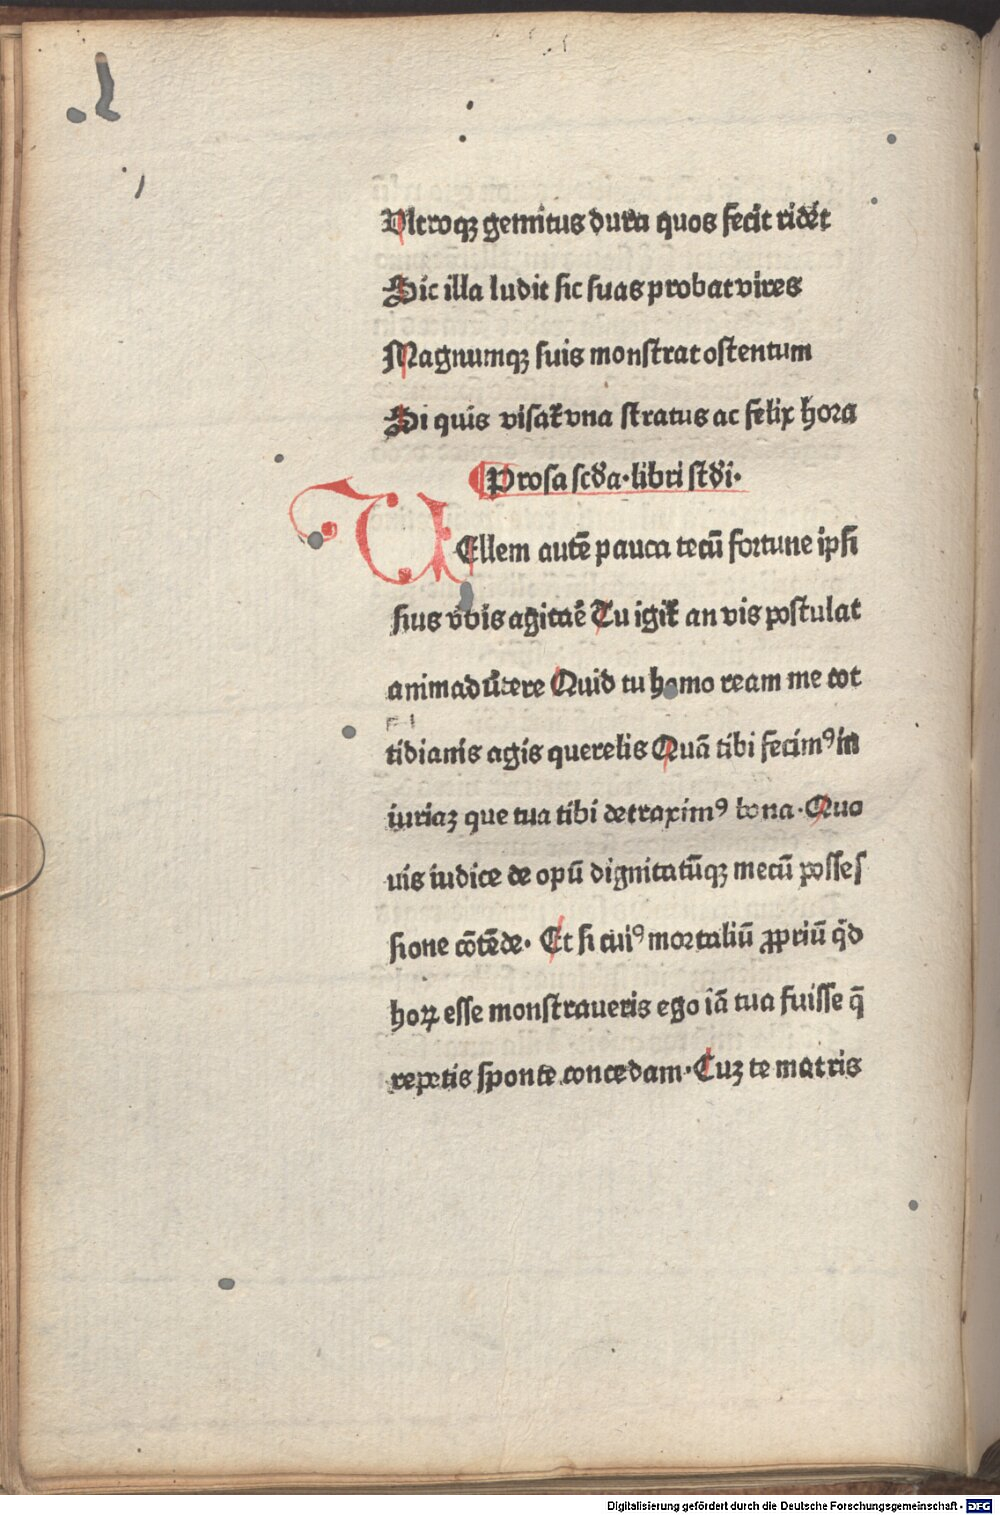 Vltroqꝫ gemitus dura quos fecit ridēt
Sic illa ludit sic suas probat vires
Magnumqꝫ suis monstrat ostentum
Si quis visat᷑ vna stratus ac felix hora
Prosa scd̄a·libri scd̄i·
VEllem autē pauca tecū fortune ipſi
ſius v̄bis agitaē Tu igit᷑ an vis poſtulat
animadv̄tere Quid tu homo ream me cot
tidianis agis querelis Quā tibi fecimꝰ in
iuriaꝫ que tua tibi detraximꝰ bona·Quo
uis iudice de opū dignitatūqꝫ mecū poſſeſ
ſione cōtēde· Et ſi cuiꝰ mortaliū ꝓpriū q̇d
hoꝝ eſſe monſtraueris ego iā tua fuiſſe q̄
repetis ſponte concedam·Cuꝫ te matris
Digitalisierung gefördert durch die Deutsche Forschungsgemeinschaft - DFG